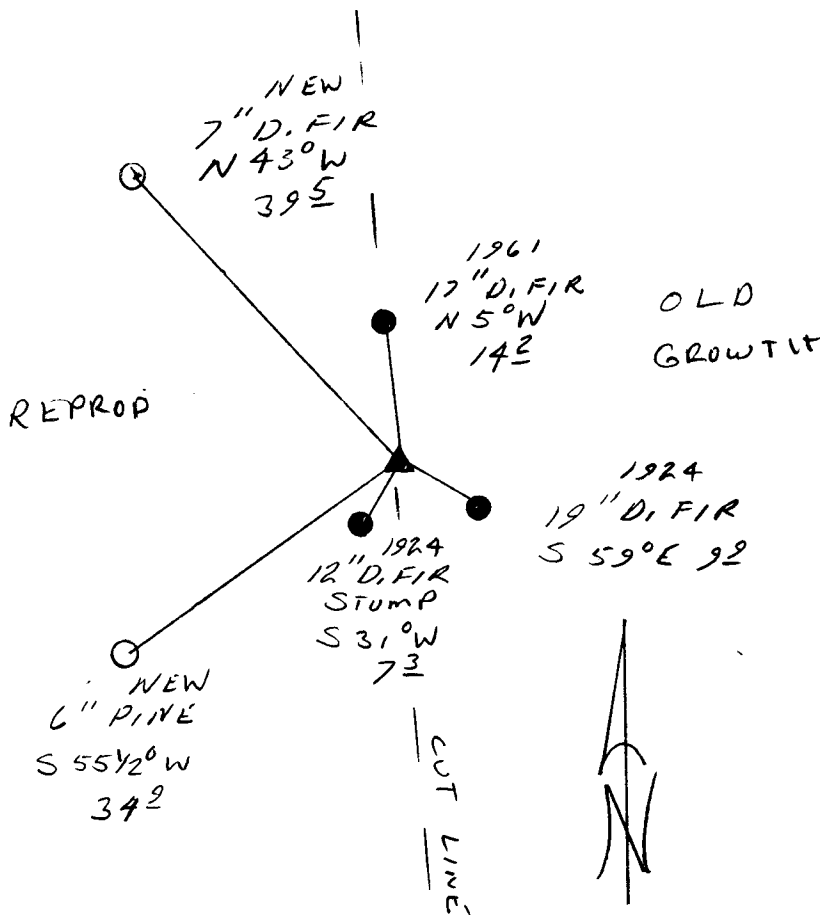 NEW
7" D. FIR
N 43° W
39 5
1961
17" D. FIR
N 5° W
14 2
OLD
GROWTH
REPROD
1924
19" D. FIR
S 59° E 9 2
1924
12" D. FIR
STUMP
S 31° W
7 3
NEW
6" PINE
S 55 1/2° W
34 2
CUT LINE
N